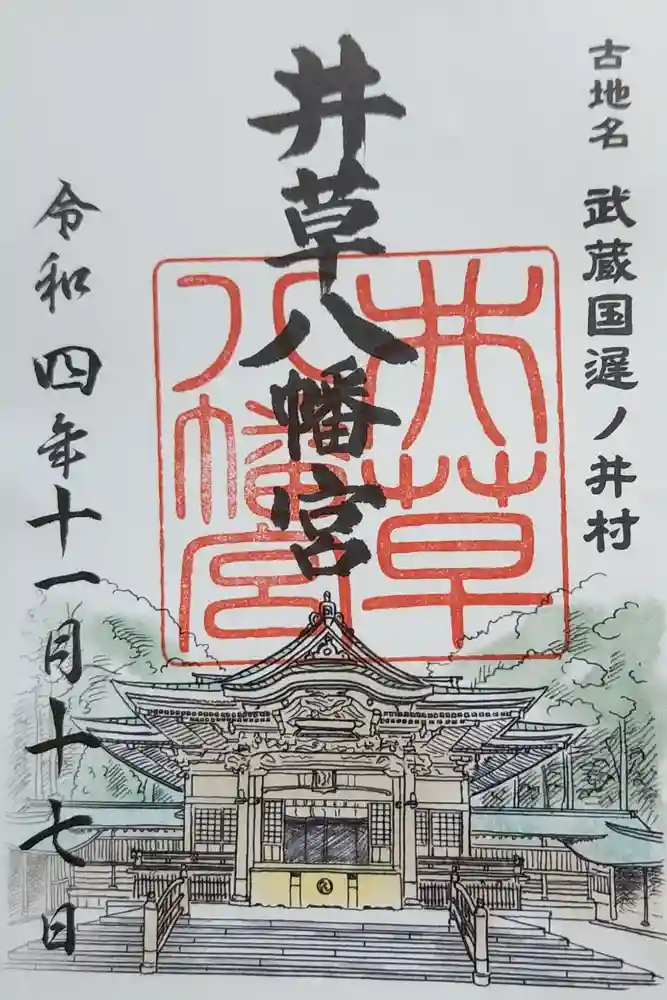 古地名 武蔵国遅ノ井村
井草八幡宮
井草八幡宮
令和四年十一月十七日